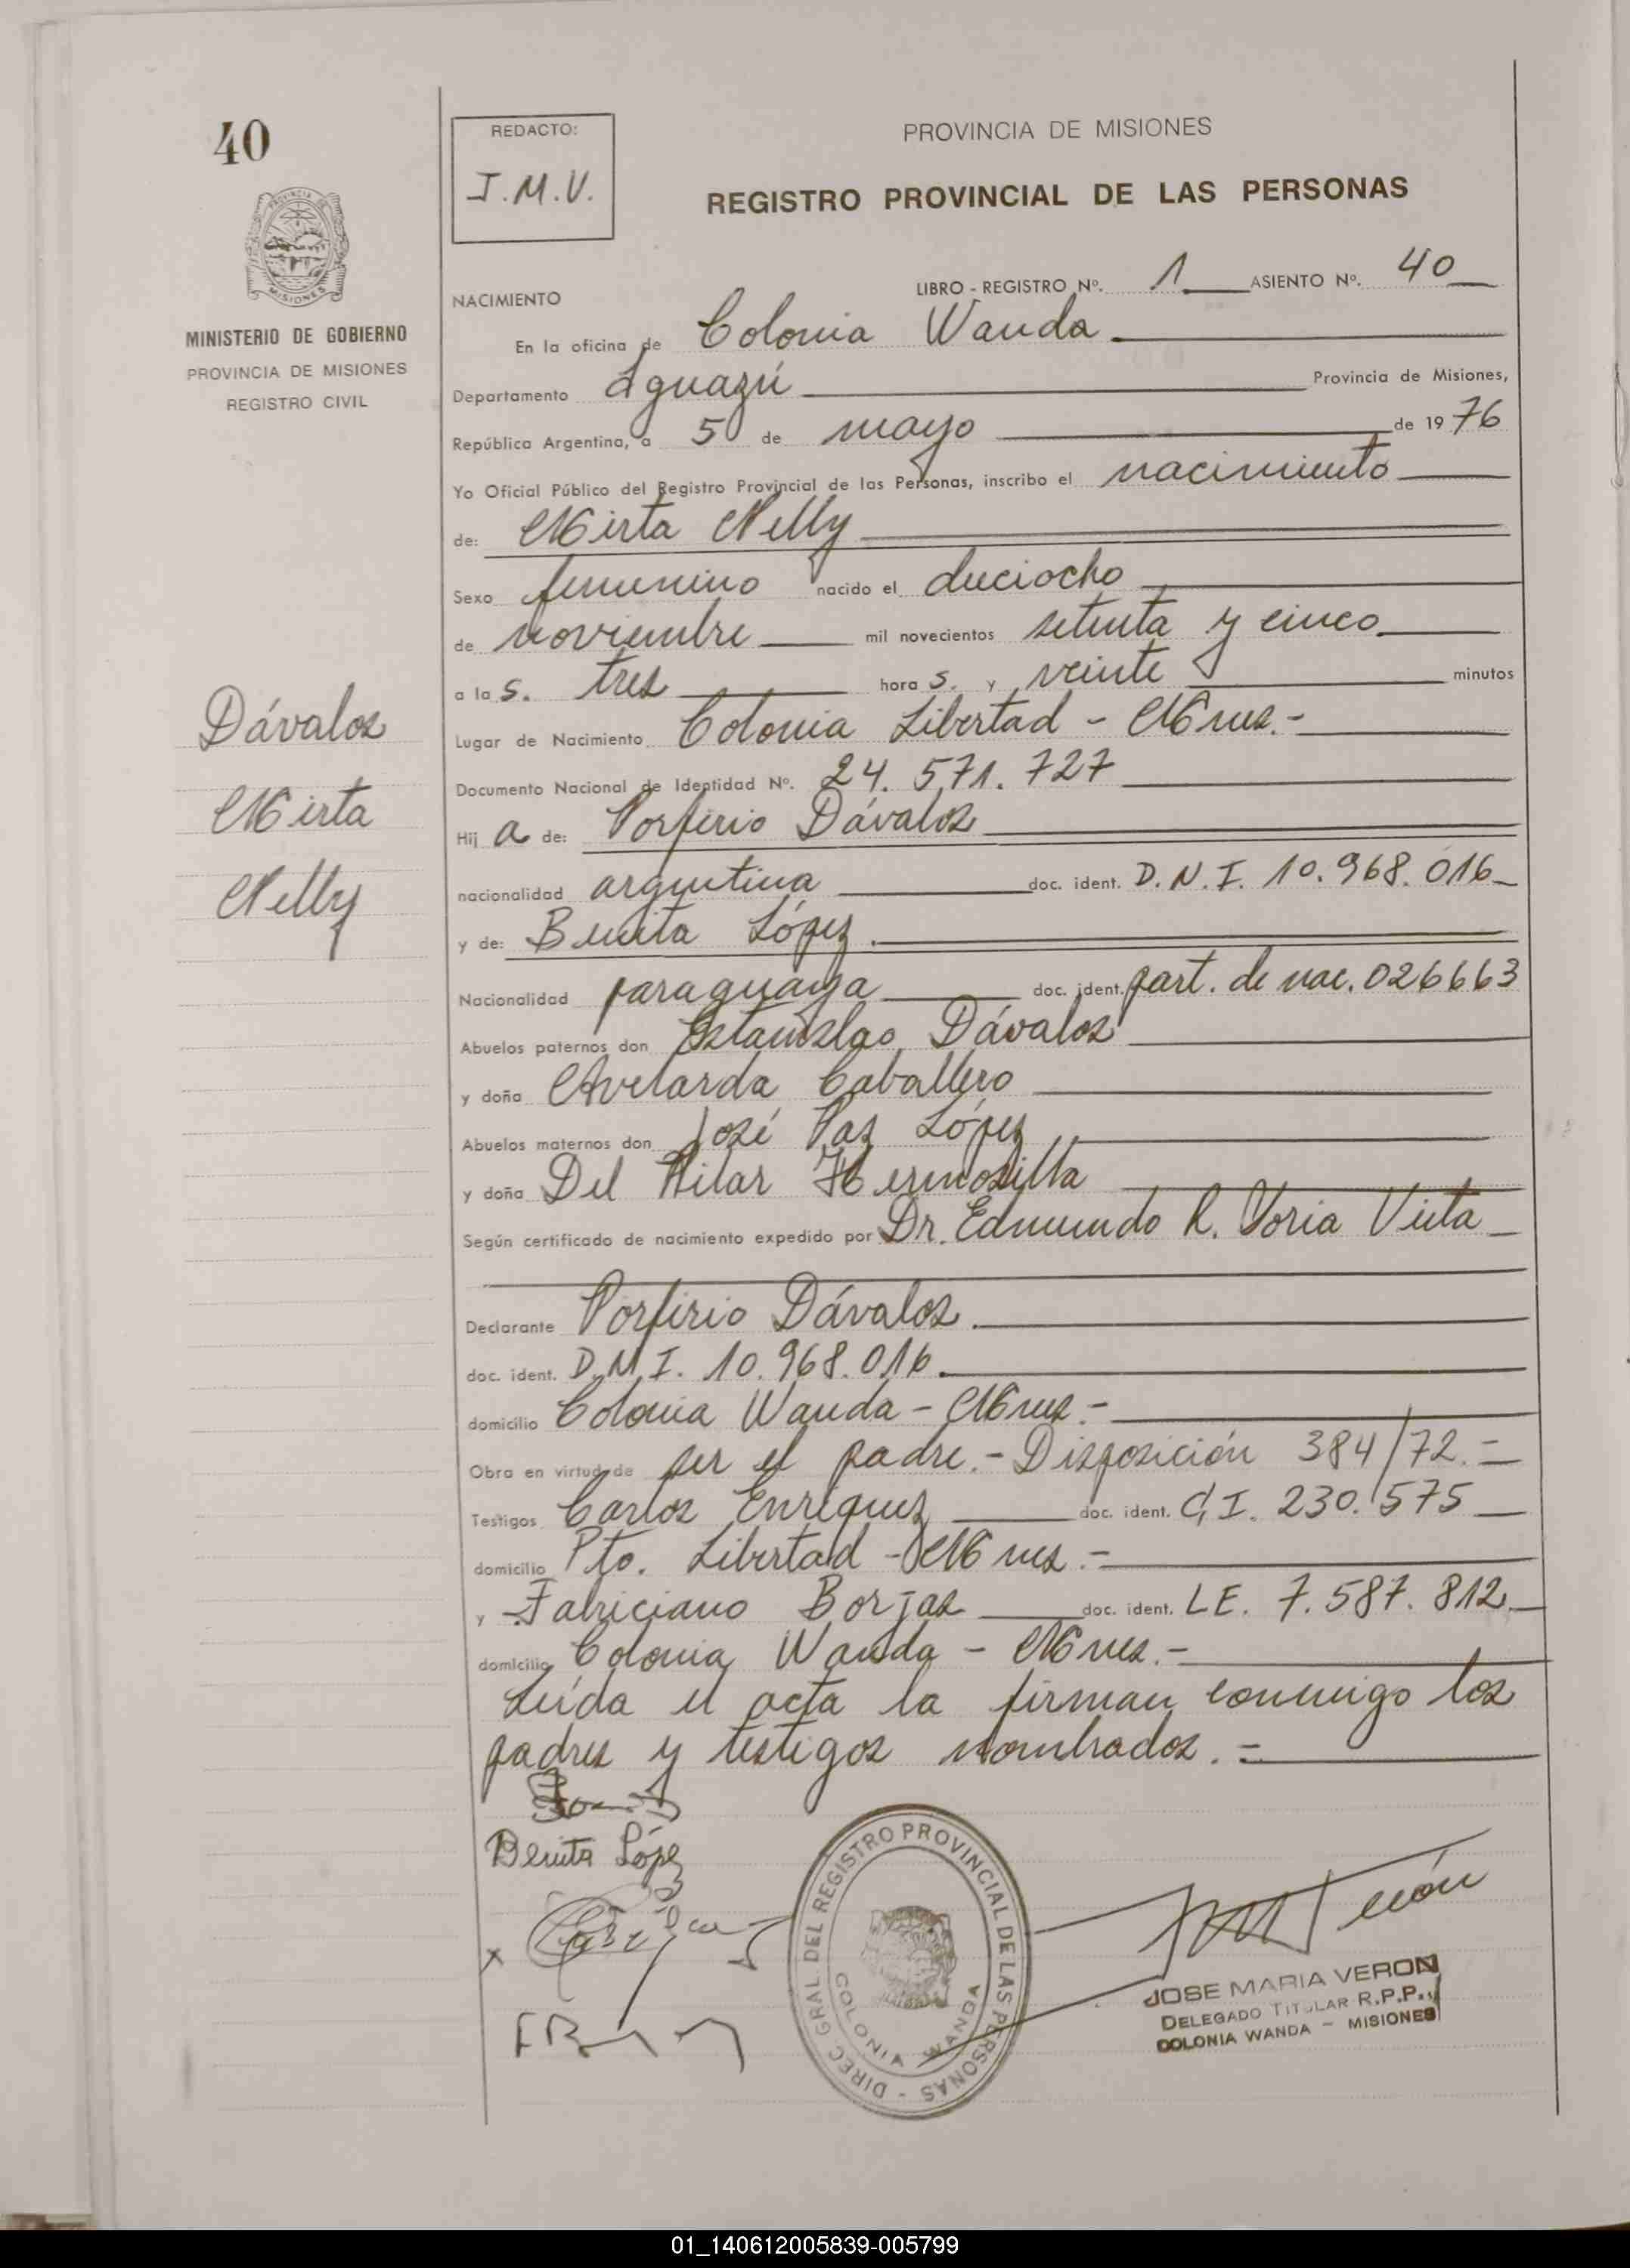 40
REDACTO:
J.M.V.
PROVINCIA DE MISIONES
REGISTRO PROVINCIAL DE LAS PERSONAS
MINISTERIO DE GOBIERNO
PROVINCIA DE MISIONES
REGISTRO CIVIL
LIBRO - REGISTRO Nº. 1 ASIENTO Nº. 40
NACIMIENTO
En la oficina de Colonia Wanda
Departamento Iguazú Provincia de Misiones,
República Argentina, a 5 de mayo de 1976
Yo Oficial Público del Registro Provincial de las Personas, inscribo el nacimiento
de: Mirta Nelly
Sexo femenino nacido el dieciocho
de noviembre mil novecientos setenta y cinco
a las. tres horas. y veinte minutos
Lugar de Nacimiento Colonia Libertad - Mnes.-
Documento Nacional de Identidad Nº. 24.571.727
Dávalos
Mirta
Nelly
Hija de: Porfirio Dávalos
nacionalidad argentina doc. ident. D.N.I. 10.968.016
y de: Benita López
Nacionalidad paraguaya doc. ident. part. de nac. 026663
Abuelos paternos don Estanislao Dávalos
y doña Avelarda Caballero
Abuelos maternos don José Paz López
y doña Del Pilar Hermosilla
Según certificado de nacimiento expedido por Dr. Edmundo R. Voria
Declarante Porfirio Dávalos
doc. ident. D.N.I. 10.968.016
domicilio Colonia Wanda - Mnes.-
Obra en virtud de ser el padre.- Disposición 384/72.=
Testigos Carlos Enríquez doc. ident. C.I. 230.575
domicilio Pto. Libertad - Mnes.=
y Fabriciano Borjas doc. ident. LE. 7.587.812
domicilio Colonia Wanda - Mnes.-
Leída el acta la firman conmigo los
padres y testigos nombrados.=
Benita López
DIREC. GRAL. DEL REGISTRO PROVINCIAL DE LAS PERSONAS -
COLONIA WANDA
JOSE MARIA VERON
DELEGADO TITULAR R.P.P.
COLONIA WANDA - MISIONES
01_140612005839-005799